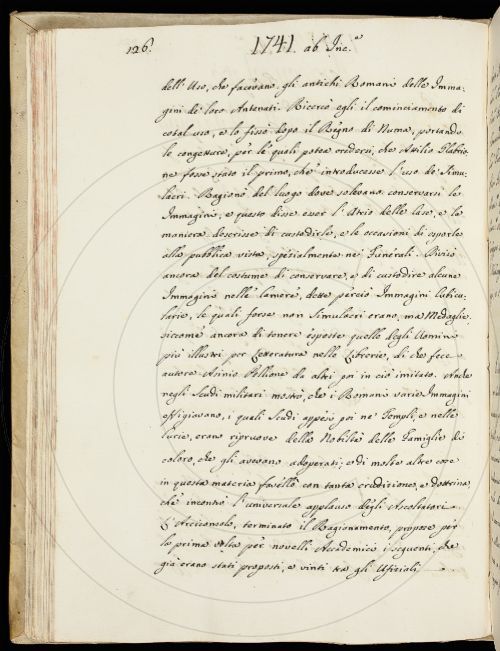 126.
1741. ab Inc.e
dell'Uso, che facevano gli antichi Romani delle Imma-
gini de' loro Antenati. Ricercò egli il cominciamento di
cotal uso, e lo fissò dopo il Regno di Numa, portando
le congetture, per le quali potea credersi, che Attilio Glabrio-
ne fosse stato il primo, che introducesse l'uso de' Simu-
lacri. Ragionò del luogo dove solevano conservarsi le
Immagini, e questo disse esser l'Atrio delle Case, e la
maniera descrisse di custodirle, e le occasioni di esporle
alla pubblica vista, spezialmente ne' Funerali. Divisò
ancora del costume di conservare, e di custodire alcune
Immagini nelle Camere, dette perciò Immagini Cubicu-
larie, le quali forse non Simulacri erano, ma Medaglie,
siccome ancora di tenere esposte quelle degli Uomini
più illustri per Letteratura nelle Librerie, di che fece
autore Asinio Pollione da altri poi in ciò imitato. Anche
negli Scudi militari mostrò, che i Romani varie Immagini
effigiavano, i quali Scudi appesi poi ne' Templi, e nelle
Curie, erano riprove della Nobiltà delle Famiglie di
coloro, che gli avevano adoperati; e di molte altre cose
in questa materia favellò con tanta erudizione, e dottrina
che incontrò l'universale applauso degli Ascoltatori.
L'Arciconsolo, terminato il Ragionamento, propose per
la prima volta per novelli Accademici i seguenti, che
già erano stati proposti, e vinti tra gli Ufiziali